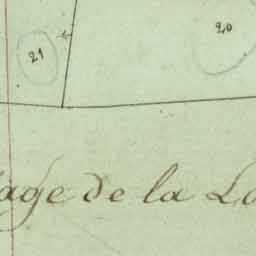 21
20
age de la Lo